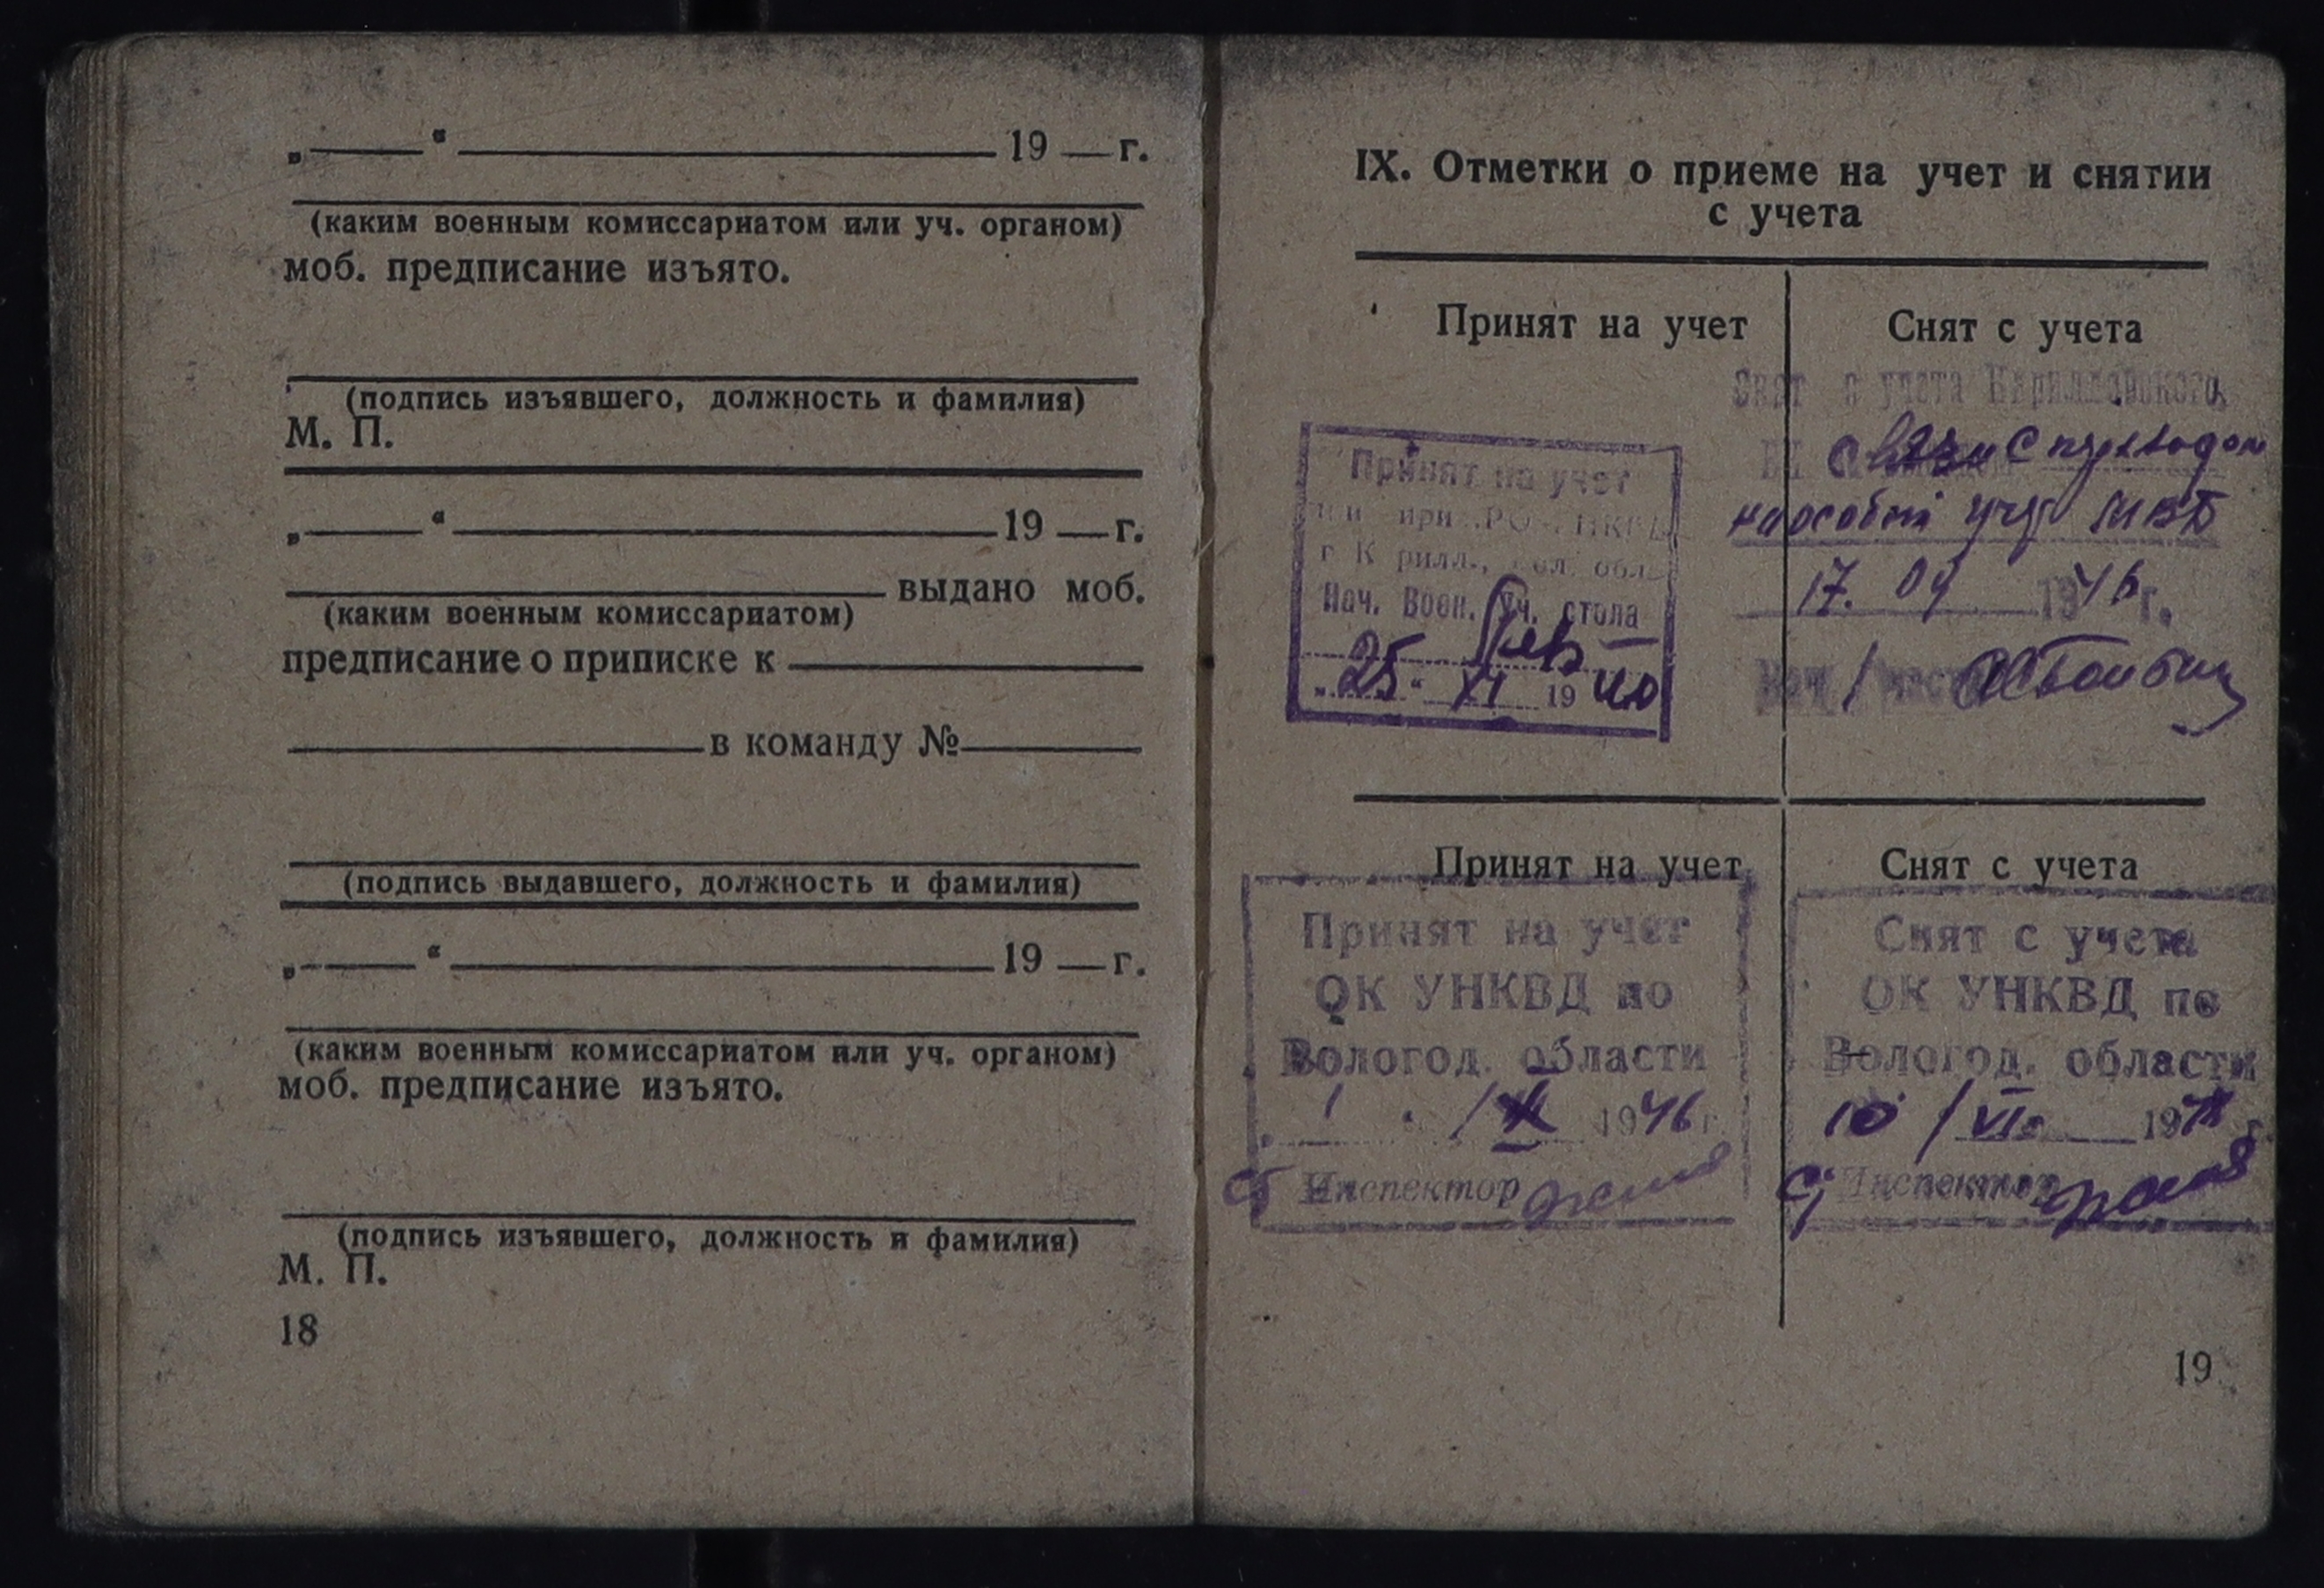 „ “ 19 г.
(каким военным комиссариатом или уч. органом)
моб. предписание изъято.
(подпись изъявшего, должность и фамилия)
М. П.
„ “ 19 г.
выдано моб.
(каким военным комиссариатом)
предписание о приписке к
в команду №
(подпись выдавшего, должность и фамилия)
„ “ 19 г.
(каким военным комиссариатом или уч. органом)
моб. предписание изъято.
(подпись изъявшего, должность и фамилия)
М. П.
18
IX. Отметки о приеме на учет и снятии
с учета
Принят на учет
Принят на учет
при РО НКВД
Нач. Воен. Уч. стола
„ 25 “ XI 19 40
Снят с учета
Снят с учета
связи с переводом
на особый учет МВД
17. 04 1946 г.
Принят на учет
Принят на учет
ОК УНКВД по
Вологод. области
1 1946 г.
Инспектор
Снят с учета
Снят с учета
ОК УНКВД по
Вологод. области
10 / VI 19
Инспектор
19